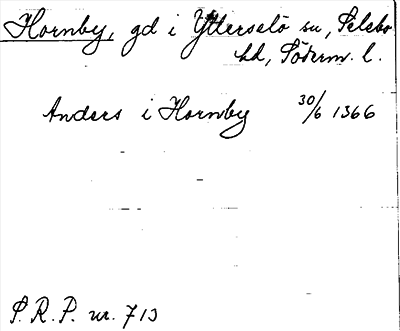 Hornby, gd i Ytterselö sn, Selebo
hd, Söderm. l.
Anders i Hornby 30/6 1366
S.R.P. nr. 713